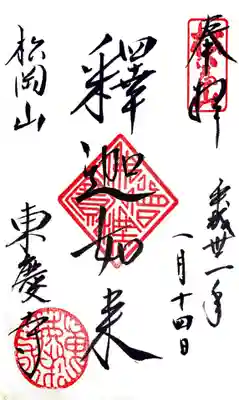 奉拝
平成卅一年
一月十四日
釋迦如来
松岡山
東慶寺